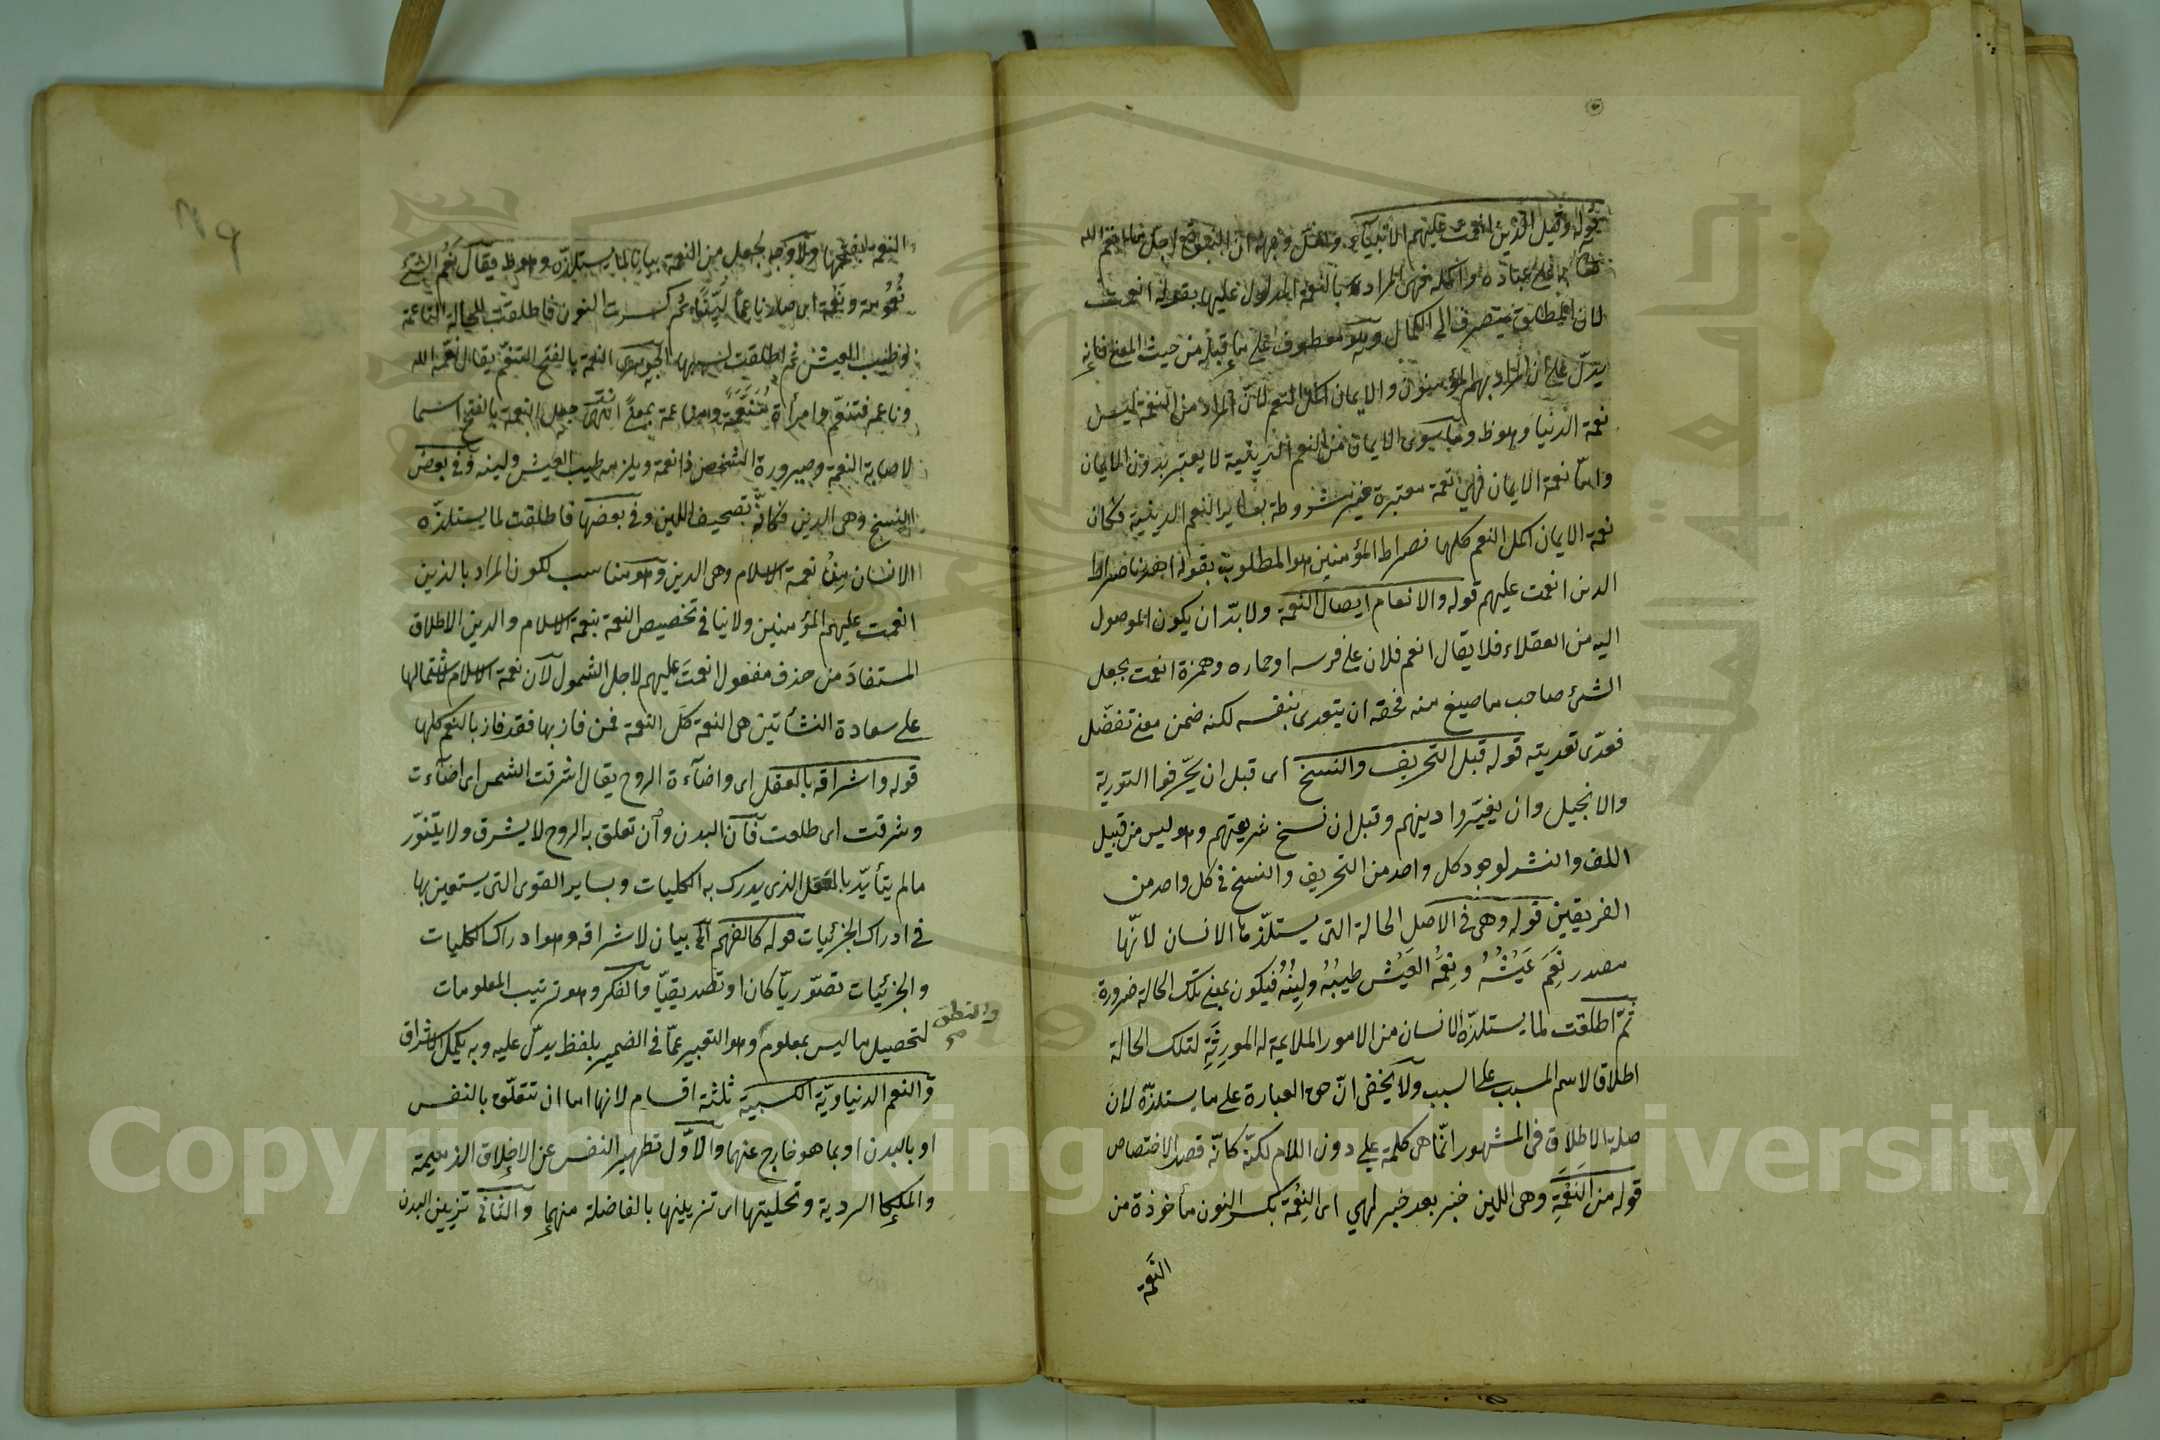 قوله وقيل الذين انعمت عليهم الانبياء
لان المطلق ينصرف الى الكمال وهو معطوف على ما قبله من حيث المعنى فانه
يدل على ان المراد بهم المؤمنون والايمان اكمل النعم لان المراد من النعمة ليس
نعمة الدنيا وهو ظ وما سوى الايمان من النعم الدينية لا يعتبر بدون الايمان
واما نعمة الايمان فهي نعمة معتبرة غير مشروطة بسائر النعم الدينية فكان
نعمة الايمان اكمل النعم كلها فصراط المؤمنين هو المطلوب بقوله اهدنا صراط
الذين انعمت عليهم قوله والانعام ايصال النعمة ولا بدّ ان يكون الموصول
اليه من العقلاء فلا يقال انعم فلان على فرسه او حماره وهمزة انعمت بجعل
الشئ صاحب ما صيغ منه فحقه ان يتعدى بنفسه لكنه ضمن معنى تفضّل
فعدّى تعديته قوله قبل التحريف والنسخ اى قبل ان يحّرفوا التورية
والانجيل وان يغيّروا دينهم وقبل ان نسخ شريعتهم وهو ليس من قبيل
اللف والنشر لوجود كل واحد من التحريف والنسخ فى كل واحد من
الفريقين قوله وهى فى الاصل الحالة التى يستلذّها الانسان لانّها
مصدر نَعِمَ عَيْشُهُ ونِعْمَةُ العَيْش طيبُهُ ولِينُهُ فيكون بمعنى تلك الحالة ضرورة
ثمّ اطلقت لما يستلذّه الانسان من الامور الملايمة له المورِثَةِ لتلك الحالة
اطلاقا لاسم المسبب على السبب ولا يخفى انّ حق العبارة على ما يستلذّه لان
صلة الاطلاق فى المشهور انّما هى كلمة على دون اللام لكنّه كانّه قصد الاختصاص
قوله من النَعْمَةِ وهى اللين خبر بعد خبر لهي اى النِعْمَة بكسر النون مأخوذة من
النَعْمَة
النعمة بفتحها ولا وجه لجعل من النعمة بيانا لما يستلذّه وهو ظ يقال نَعُم الشئ
نُعُومة ونَعْمَة اى صار ناعمًا لَيّنًا ثم كسرت النون فاطلقت للحالة الناعمة
يقال نعّمه الله
وناعمه فتنعّم وامرأة مُنَعَّمَة ومناعمة بمعنًى انتهى جعل النعمة بالفتح اسما
لاصابة النعمة وصيرورة الشخص ذا نعمة ويلزمه طيب العيش ولينه وفى بعض
النسخ وهى الدين فكانّه تصحيف اللين وفى بعضها فاطلقت لما يستلذّه
الانسان مِنْ نعمة الاسلام وهى الدين وهو مناسب لكون المراد بالذين
انعمت عليهم المؤمنين ولا ينافى تخصيص النعمة بنعمة الاسلام والدين الاطلاق
المستفادَ من حذف مفعول انعمتَ عليهم لاجل الشمول لان نعمة الاسلام لاشتمالها
على سعادة النشأتين هى النعمة كل النعمة فمن فاز بها فقد فاز بالنعم كلها
قوله واشراقه بالعقل اى واضآءة الروح يقال اشرقت الشمس اى اضآءت
وشرقت اى طلعت فان البدن وان تعلق به الروح لا يشرق ولا يتنوّر
ما لم يتأيّد بالعقل الذى يدرك به الكليات وبساير القوى التى يستعين بها
فى ادراك الجزئيات قوله كالفهم الخ بيان لاشراقه وهو ادراك الكليات
والجزئيات تصوّريّا كان او تصديقيّا والفكر وهو ترتيب المعلومات
لتحصيل ما ليس بمعلوم وهو التعبير عمّا فى الضمير بلفظ يدلّ عليه وبه يكمل الاشراق
والنطق
والنعم الدنياويّة الكسبية ثلثة اقسام لانها اما ان تتعلّق بالنفس
او بالبدن او بما هو خارج عنهما والاوّل تطهير النفس عن الاخلاق الذميمة
والملكات الردية وتحليتها اى تزيينها بالفاضلة منهما والثانى تزيين البدن